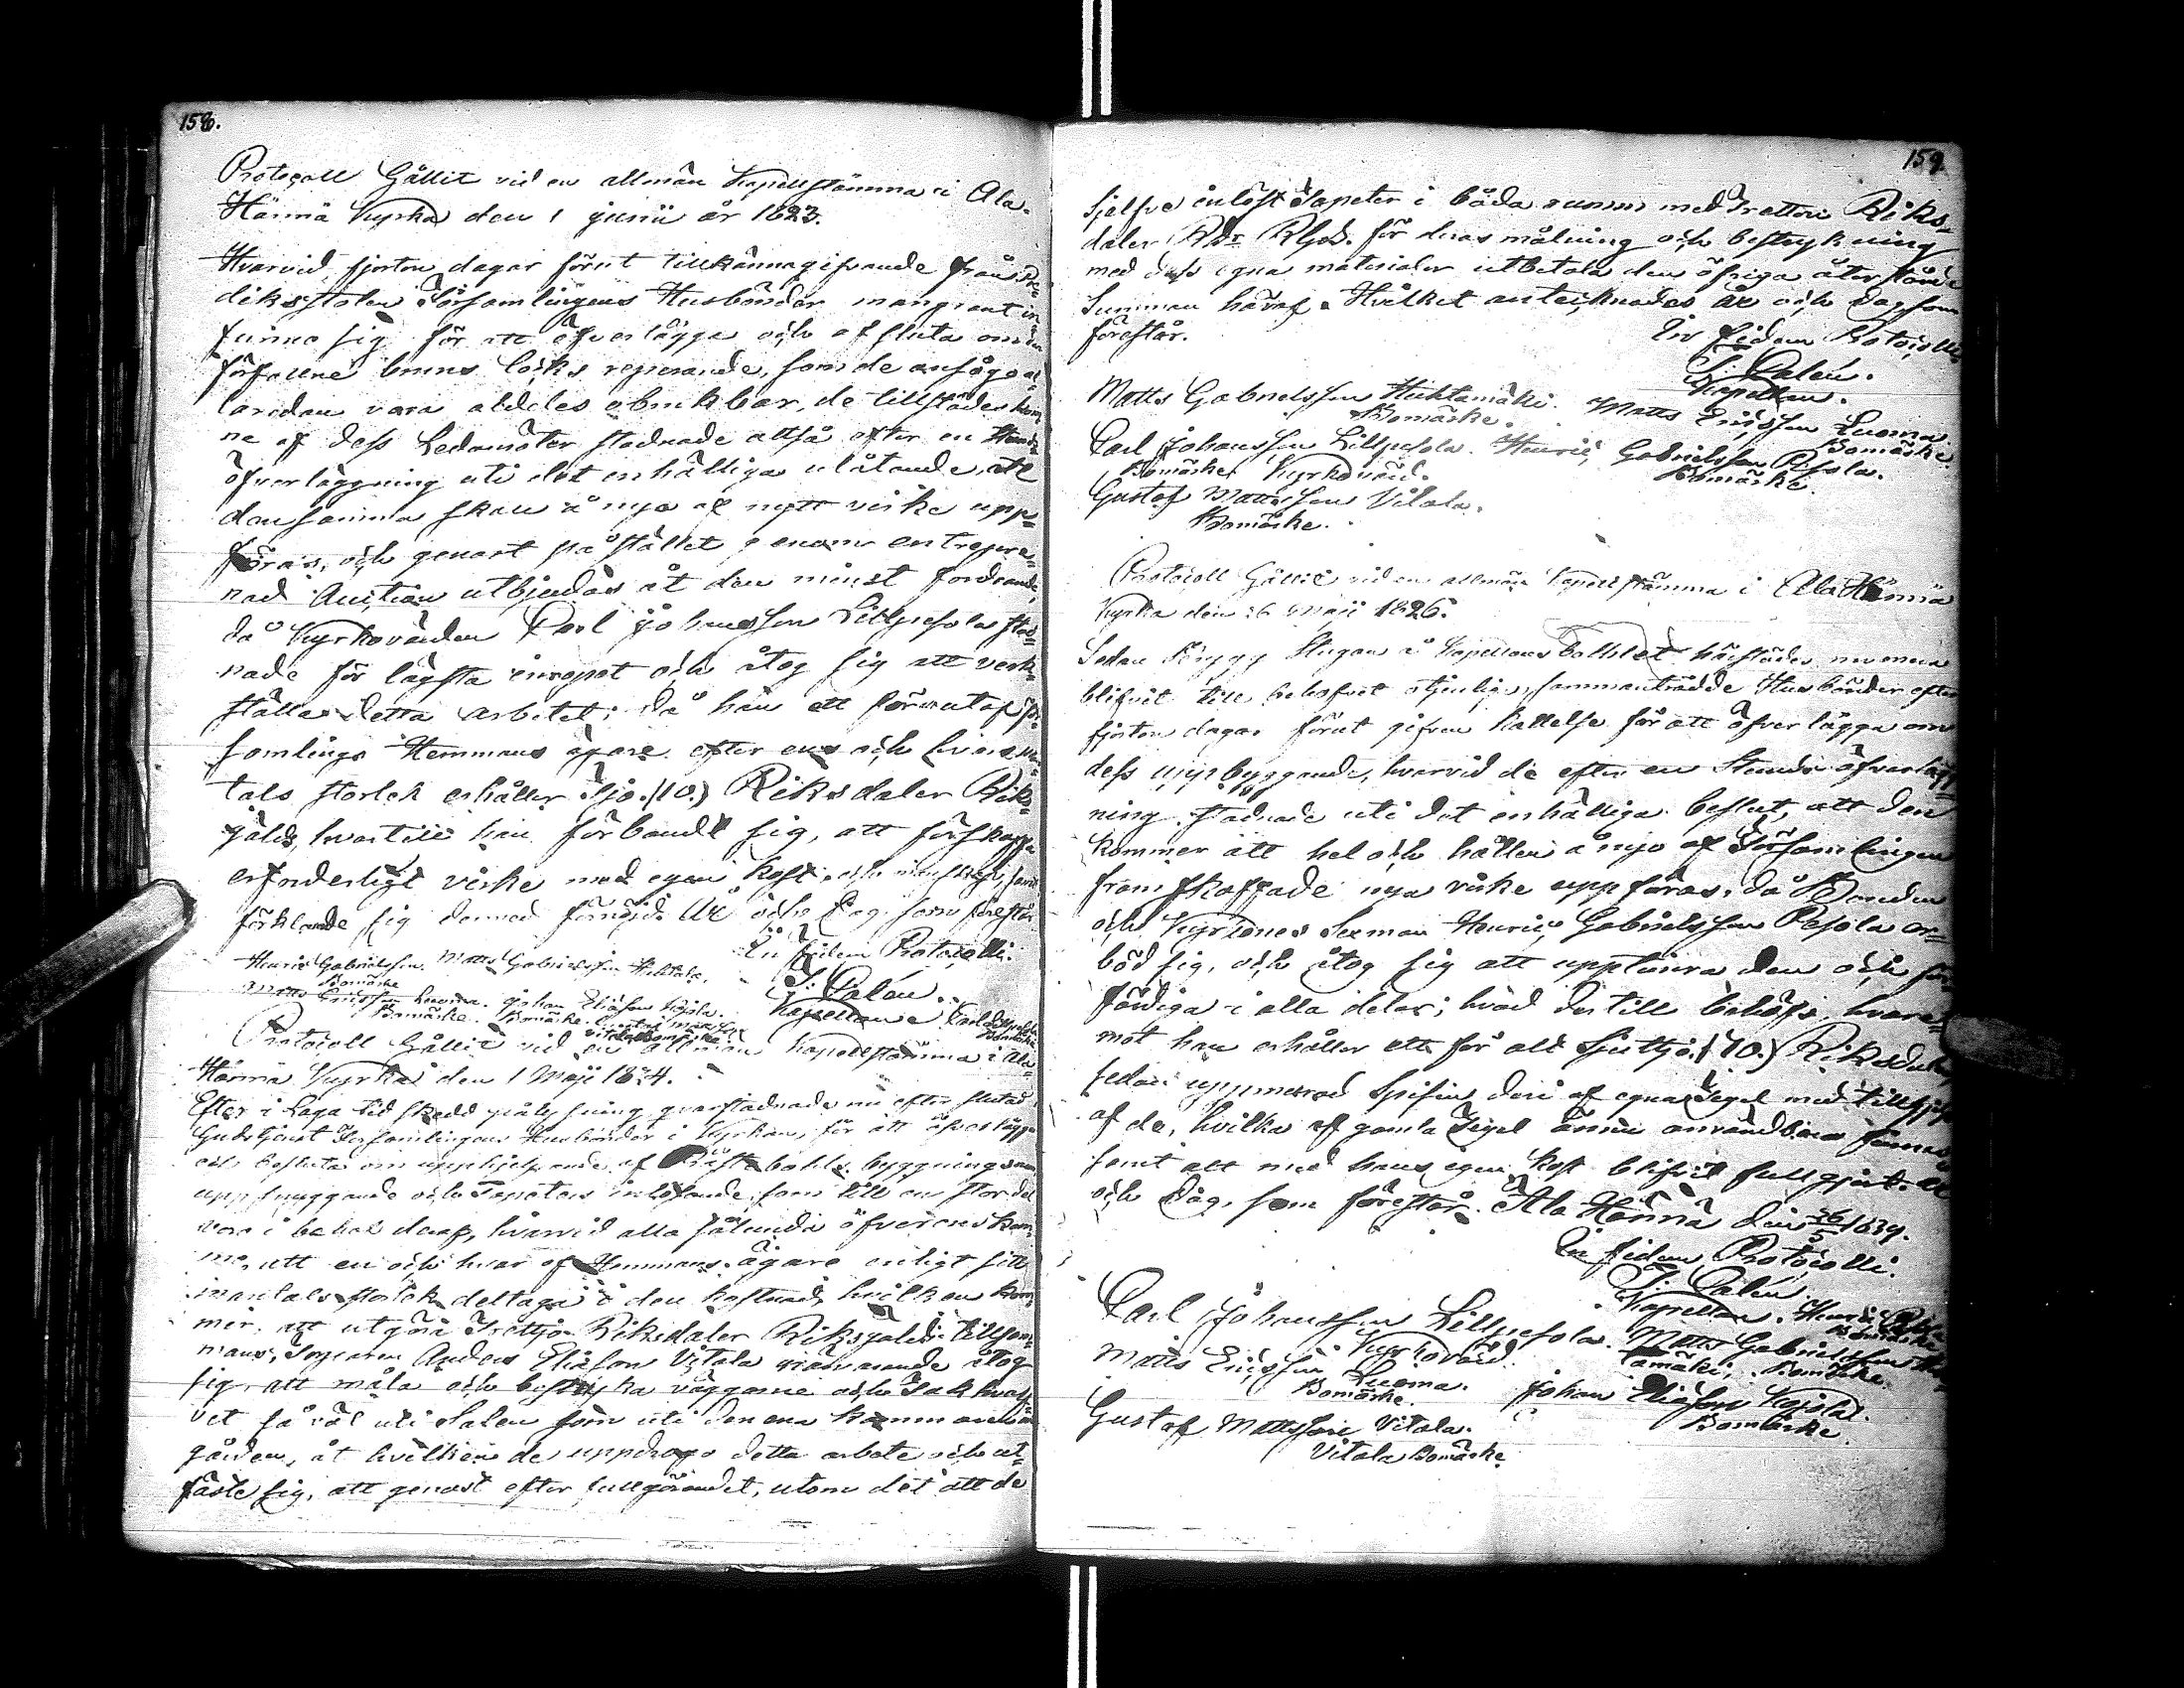 158.
Protocoll hållit vid en allmän Kapellstämma i Ala-
Härmä Kyrka den 1 junii år 1823.
Hvarvid, fjorton dagar förut tillkännagifvande från Pre-
dikostolen Församlingens Husbönder mangrant in-
funno sig för att öfverlägga och afsluta om
förfallne bruns locks reparande, som de ansågo
varidan vara aldeles obrukbar, de tillstädes kom-
ne af dess Ledamöter stadnade alltså efter en stunds
öfverläggning uti det enhälliga utlåtande, att
densamma skall å nyo af nytt virke upp-
föras, och genast på stället genom entrepre-
nad Auction utbjudas åt den minst fordrande,
då Kyrkovärden Carl Johansson Lillpesola stad-
nade för lägsta inropet och åtog sig att verk-
ställa detta arbetet; då han att förutaf för-
samlings Hemmans ägare efter ens och hvars man-
tals storlek erhåller Tjo (10.) Riksdaler Riks-
gälds, hvartill han förbandt sig, att förskaffa
erforderligt virke med egen kost, och
förklarade sig dermed förnöjd. År och Dag som förestår.
In fidem Protocolli.
J. Calén.
Kapellan.
Henric Gabrielsson Matts Gabrielsson Huhtala.
Bomärke
Matts Ericsson Luoma. Johan Eliäson Kojola.
Bomärke. Bomärke. Gustaf Mattsson Carl Lillpesola
Vitala Bomärke. Bomärke
Protocoll hållit vid en allmän Kapellstämma i Ala-
Härmä Kyrka den 1 Maji 1824.
Efter i Laga tid skedd pålysning qvarstadnade nu efter slutad
Gudstjenst Församlingens Husbönder i Kyrkan, för att öfverlägga
och besluta om upphjelpande af Prästebohls byggningens
uppsnyggande och Tapeters inlösande, som till en stor del
vore i behof deraf, hvarvid alla sålunda öfverenskom-
mo, att en och hvar af Hemmans ägare enligt sitt
mantals storlek deltaga i den kostnad, hvilken kom-
mer att utgöra Trettjo Riksdaler Riksgälds tillsam-
mans, Torparen Anders Eliäson Vitala närvarande åtog
sig, att måla och bestryka väggarne och Takhvalf-
vet så väl uti Salen som uti den ena kammaren
gården, åt hvilken de uppdrogo detta arbete och ut-
fäste sig, att genast efter fullgörandet, utom det att de
159.
sjelfve inlöst Tapeter i båda rummen med Tretton Riks-
daler Rdr Rgds. för deras målning och bestrykning
med dess egna materialer utbetala den öfriga återstående
Summan häraf. Hvilket antecknades år och dag som
förestår.
In fidem Protocolli
J. Calén.
Kapellan.
Matts Gabrielsson Huhtamäki. Matts Ericsson Luoma.
Bomärke. Bomärke.
Carl Johansson Lillpesola. Henric Gabrielsson Pesola.
Bomärke Kyrkovärd. Bomärke.
Gustaf Mattsson Vitala.
Bomärke.
Protocoll hållit vid en allmän Kapellstämma i Ala Härmä
Kyrka den 26 Maji 1826.
Sedan Förygg Stugan å Kapellans Bolstället härstädes numera
blifvit till behofvet otjenlig, sammanträdde Husbönder efter
fjorton dagar förut gifven kallelse för att öfverlägga om
dess uppbyggande, hvarvid de efter en stunds öfverlägg-
ning stadnade uti det enhälliga beslut, att den
kommer att hel och hållen å nyo af Församlingen
framskaffade nya virke uppföras, då Bonden
och Kyrkones Sexman Henric Gabrielsson Pesola er-
böd sig, och åtog sig att upptimra den och för-
färdiga i alla delar; hvad dertill behöfs, hvare-
mot han erhåller ett för allt Sjuttjo (70.) Riksdaler
sedan uppmurad Spisen deri af egna Tegel med tillhjelp
af de, hvilka af gamla Tegel ännu användbara finnas
samt att med hans egen kost blifvit fullgjord. År
och Dag, som förestår. Ala Härmä den 26/5 1839.
In fidem Protocolli.
J. Calén
Kapellan. Henric Pesola
Bomärke
Carl Johansson Lillpesola. Matts Gabrielsson Huh-
Kyrkovärd. tamäki, Bomärke.
Matts Ericsson Luoma. Johan Eliäson Kojola.
Bomärke. Bomärke
Gustaf Mattsson Vitala.
Vitala Bomärke